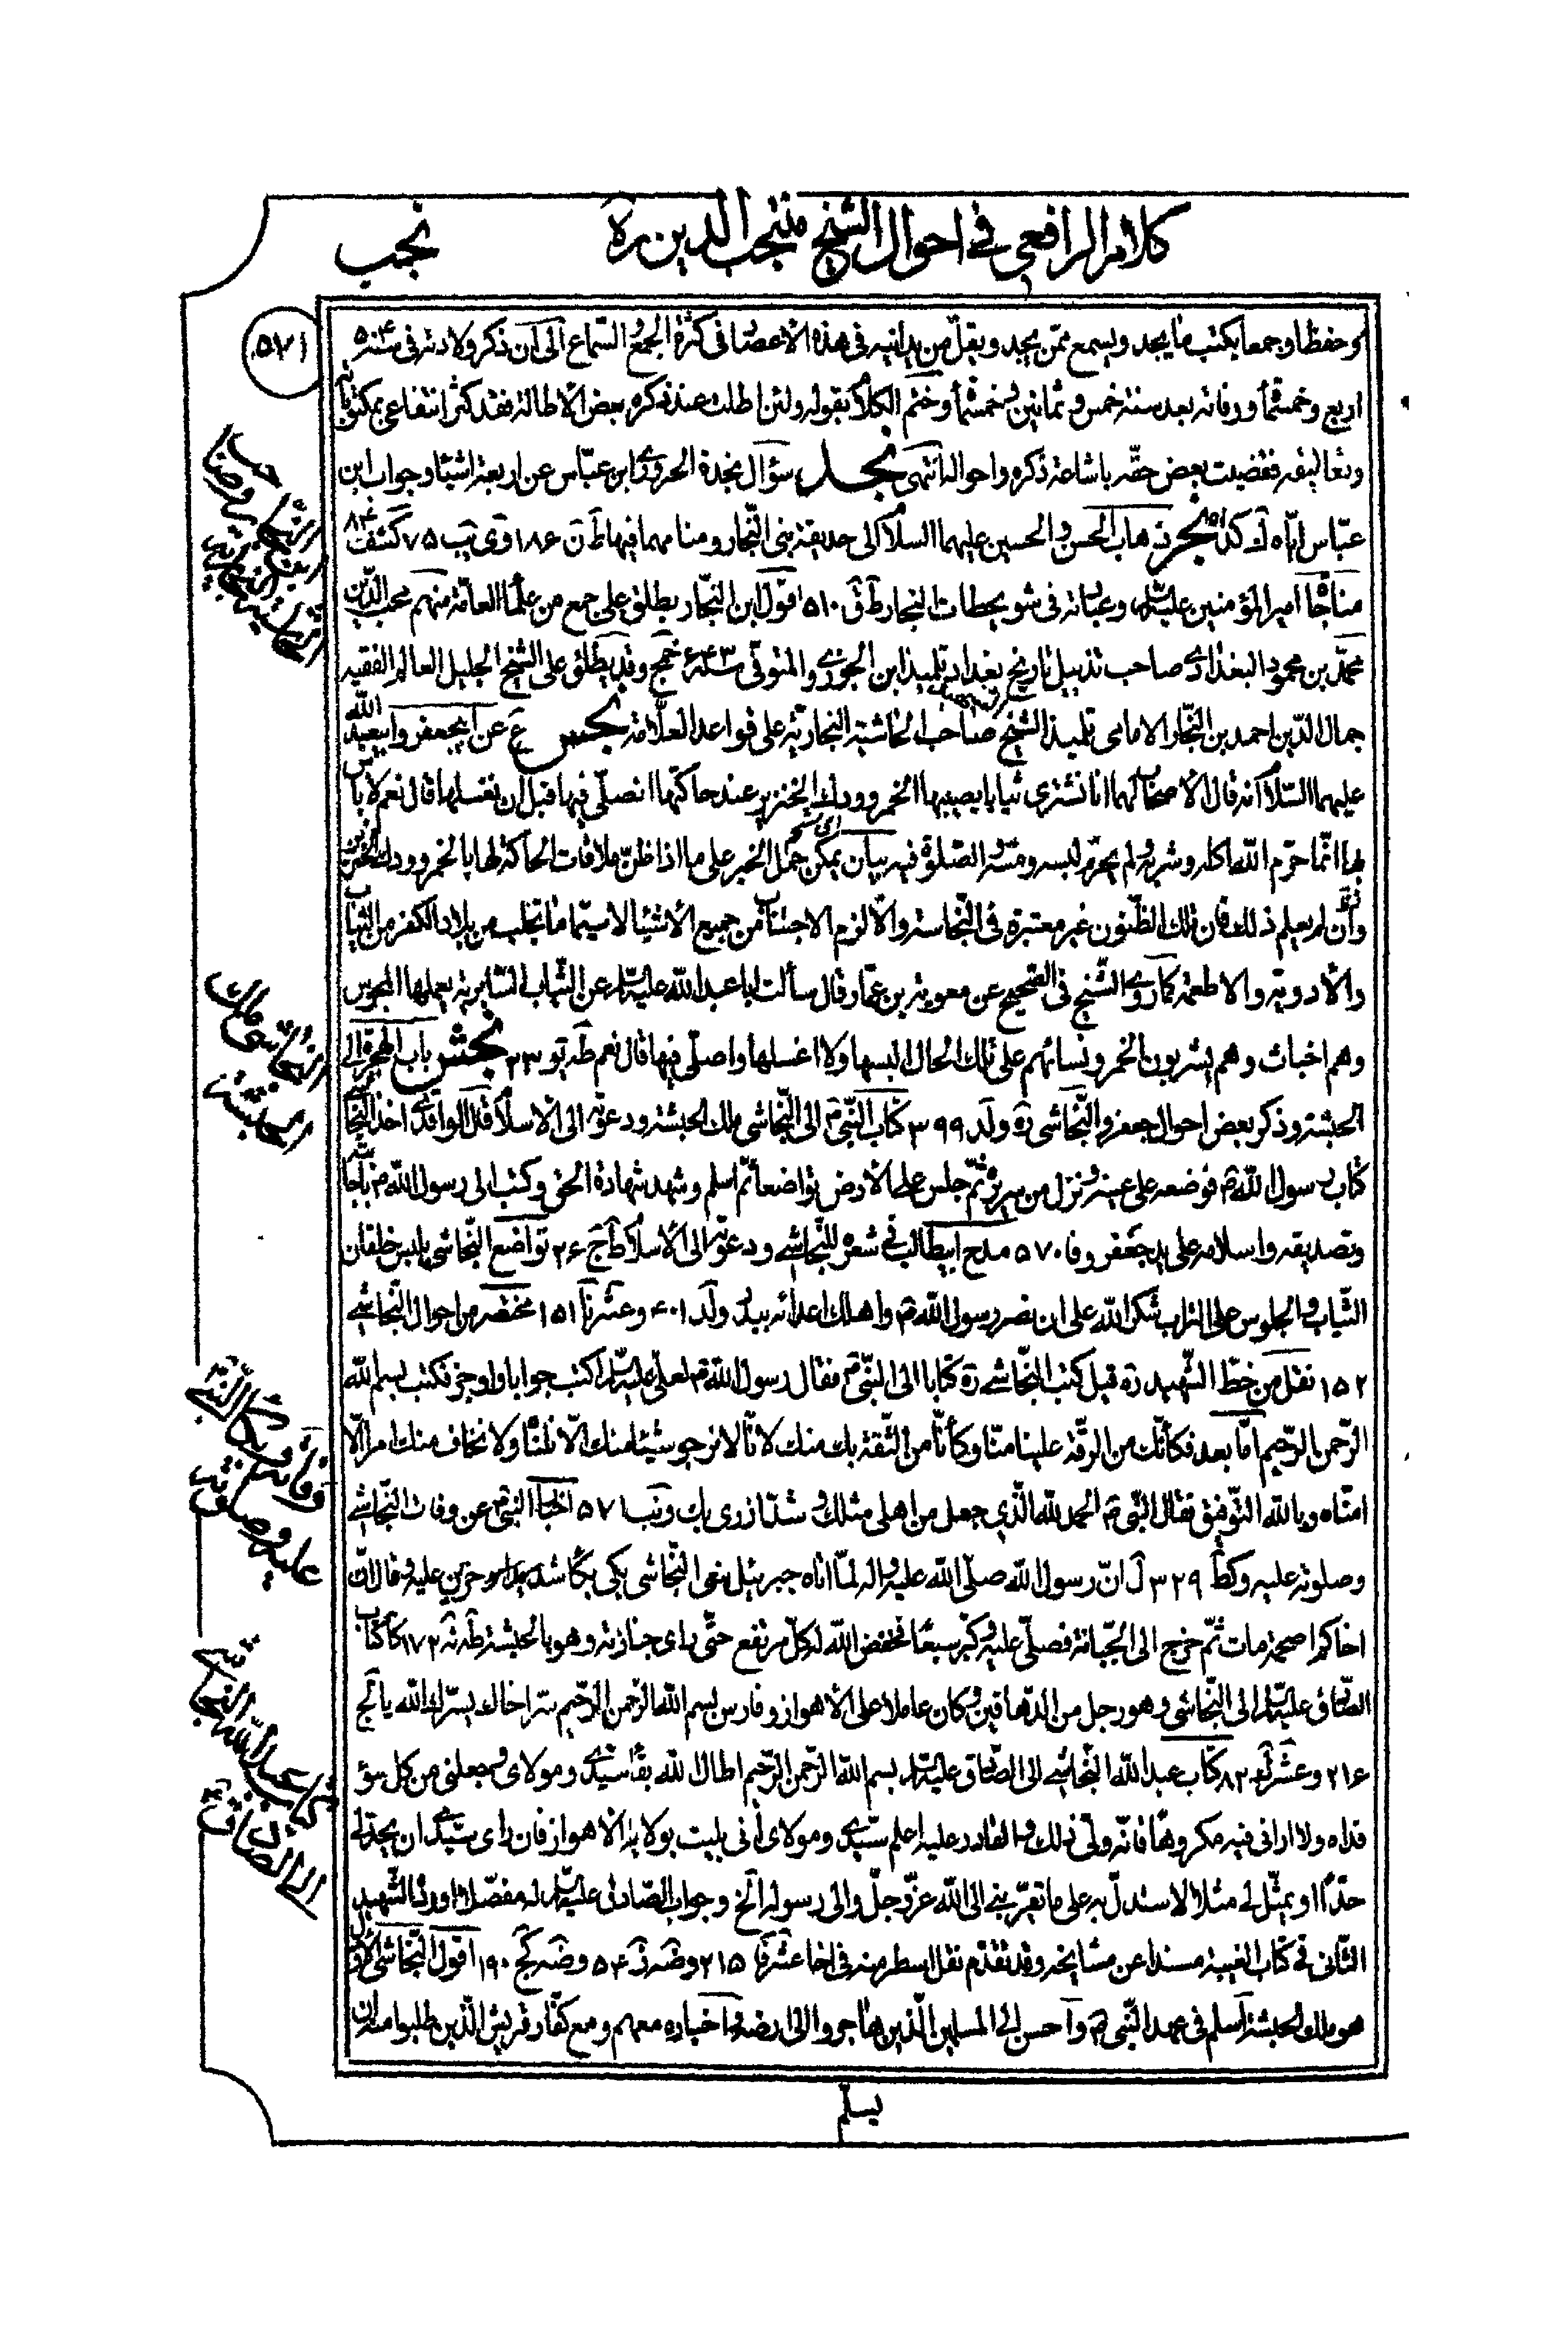 كلام الرافعي في احوال الشيخ منتجب الدين ره
نجب
٥٧١
وحفظا وجمعا يكتب ما يجد ويسمع ممّن يجد ويقلّ من يدانيه في هذه الأعصا في كثرة الجمع والسّماع الى ان ذكر ولادته في سنة ٥٠٤
اربع وخمسمأ ووفاته بعد سنة خمس وثمانين وخمسمأ وختم الكلام بقوله ولئن اطلت عند ذكره بعض الاطالة فقد كثر انتفاعي بمكتوباته
وتعاليقه فقضيت بعض حقّه باشاعة ذكره واحواله انتهى نجد سؤال نجدة الحروري ابن عبّاس عن اربعة اشيا وجواب ابن
عبّاس ايّاه نجر ذهاب الحسن والحسين عليهما السلام الى حديقة بني النّجار ومنامهما فيها ط ن ١٨٦ وى يب ٧٥ كشف ٨٤
مناجا امير المؤمنين عليه السّلم وعباداته في شويحطات النجار ط ق ٥١٠ اقول ابن النجّار يطلق على جمع من علمأ العامّة منهم محب الدّين
محمّد بن محمود البغدادي صاحب تذييل تاريخ بغداد تلميذ ابن الجوزي والمتوفّى سنة ٦٤٣ خمج وقد يطلق على الشيخ الجليل العالم الفقيه
جمال الدّين احمد بن النجّار الامامي تلميذ الشيخ صاحب الحاشية النجارية على قواعد العلّامة نجس ع عن ابيجعفر وابيعبد الله
عليهما السّلام انه قال لاصحاب لهما انا نشتري ثيابا يصيبها الخمر وودك الخنزير عند حاكتها انصلّي فيها قبل ان نغسلها قال نعم لا باس
بها انّما حرّم الله اكله وشربه ولم يحرّم لبسه ومسّه والصّلوة فيه بيان يمكن حمل الخبر على ما اذا ظنّ ملاقات الحاكة لها بالخمر وودك الخنزير
وان لم يعلم ذلك فان تلك الظّنون غير معتبرة في النّجاسة والّا لزم الاجتناب من جميع الأشيأ لا سيّما ما تجلب من بلاد الكفر من الثياب
والأدوية والاطعمة كما روى الشّيخ في الصّحيح عن معوية بن عمّار قال سألت ابا عبد الله عليه السّلم عن الثّياب السّابرية يعملها المجوس
وهم اخباث وهم يشربون الخمر ونسائهم على تلك الحال البسها ولا اغسلها واصلّي فيها قال نعم طه يو ٢٣ نجش باب الهجرة الى
الحبشة وذكر بعض احوال جعفر والنّجاشي ره و لد ٣٩٩ كتاب النّبيّ ص الى النّجاشي ملك الحبشة ودعوته الى الاسلام قال الواقدي اخذ النّجاشي
كتاب رسول الله ص فوضعه على عينه ونزل من سريره ثمّ جلس على الأرض تواضعا ثم اسلم وشهد شهادة الحقّ وكتب الى رسول الله ص باجابته
وتصديقه واسلامه على يد جعفر و فا ٥٧٠ مدح ابيطالب في شعره للنّجاشي ودعوته الى الأسلام ط ج ٢٦ تواضع النّجاشي بلبس خلقان
الثّياب والجلوس على التراب شكر الله على ان نصر رسول الله ص واهلك اعدائه ببدر و لد ٤٠١ وعشر نا ١٥١ مختصر من احوال النّجاشي
١٥٢ نقل من خطّ الشّهيد ره قيل كتب النّجاشي ره كتابا الى النّبيّ ص فقال رسول الله ص لعلي عليه السّلم اكتب جوابا واوجز فكتب بسم الله
الرّحمن الرّحيم امّا بعد فكأنّك من الرقّة علينا منّا وكأنّا من الثّقة بك منك لانّا لا نرجو شيئا منك الّا نلنا ولا نخاف منك امرا الّا
امنّاه وبالله التّوفيق فقال النّبيّ ص الحمد لله الّذي جعل من اهلي مثلك وشدّ ازري بك و نب ٥٧١ اخبار النبيّ ص عن وفات النّجاشي
وصلوته عليه و كط ٣٢٩ ل انّ رسول الله صلّى الله عليه واله لمّا اتاه جبرئيل بنعي النّجاشي بكى بكأ شديدا حزين عليه وقال انّ
اخاكم اصحمة مات ثمّ خرج الى الجبّانة فصلّى عليه وكبّر سبعا فخفض الله له كلّ مرتفع حتّى راى جنازته وهو بالحبشة طه نه ١٧٢ كا كتاب
الصّادق عليه السّلم الى النّجاشي وهو رجل من الدّهاقين وكان عاملا على الأهواز وفارس بسم الله الرّحمن الرّحيم سرّ اخاك يسرّك الله يا كج
٢١٦ وعشر له ٨٢ كتاب عبد الله النّجاشي الى الصّادق عليه السّلم بسم الله الرّحمن الرّحيم اطال الله بقأ سيّدي ومولاي وجعلني من كلّ سؤ
فداه ولا اراني فيه مكروها فانّه وليّ ذلك والقادر عليه اعلم سيّدي ومولاي أني بليت بولاية الأهواز فان راى سيّدي ان يحدّ لي
حدّا او يمثّل لي مثلا لاستدلّ به على ما تقرّبني الى الله عزّ وجلّ والى رسوله الخ وجواب الصّادق عليه السّلم له مفصّلا اورده الشّهيد
الثّاني في كتاب الغيبة مسندا عن مشايخه وقد تقدّم نقل اسطر منه في اخا عشر فا ٢١٥ و ضه ف ٥٤ و ضه كج ١٩٠ اقول النّجاشي الأوّل
هو ملك الحبشة اسلم في عهد النّبي ص واحسن الى المسلمين الّذين هاجروا الى ارضه واخباره معهم ومع كفّار قريش الّذين طلبوا منه ان
يسلّم
النجاشي ملك
الحبشة
وفاته وبكاء النّبي
عليه وصلوته
كتاب عبد الله النجاشي
الى الصادق